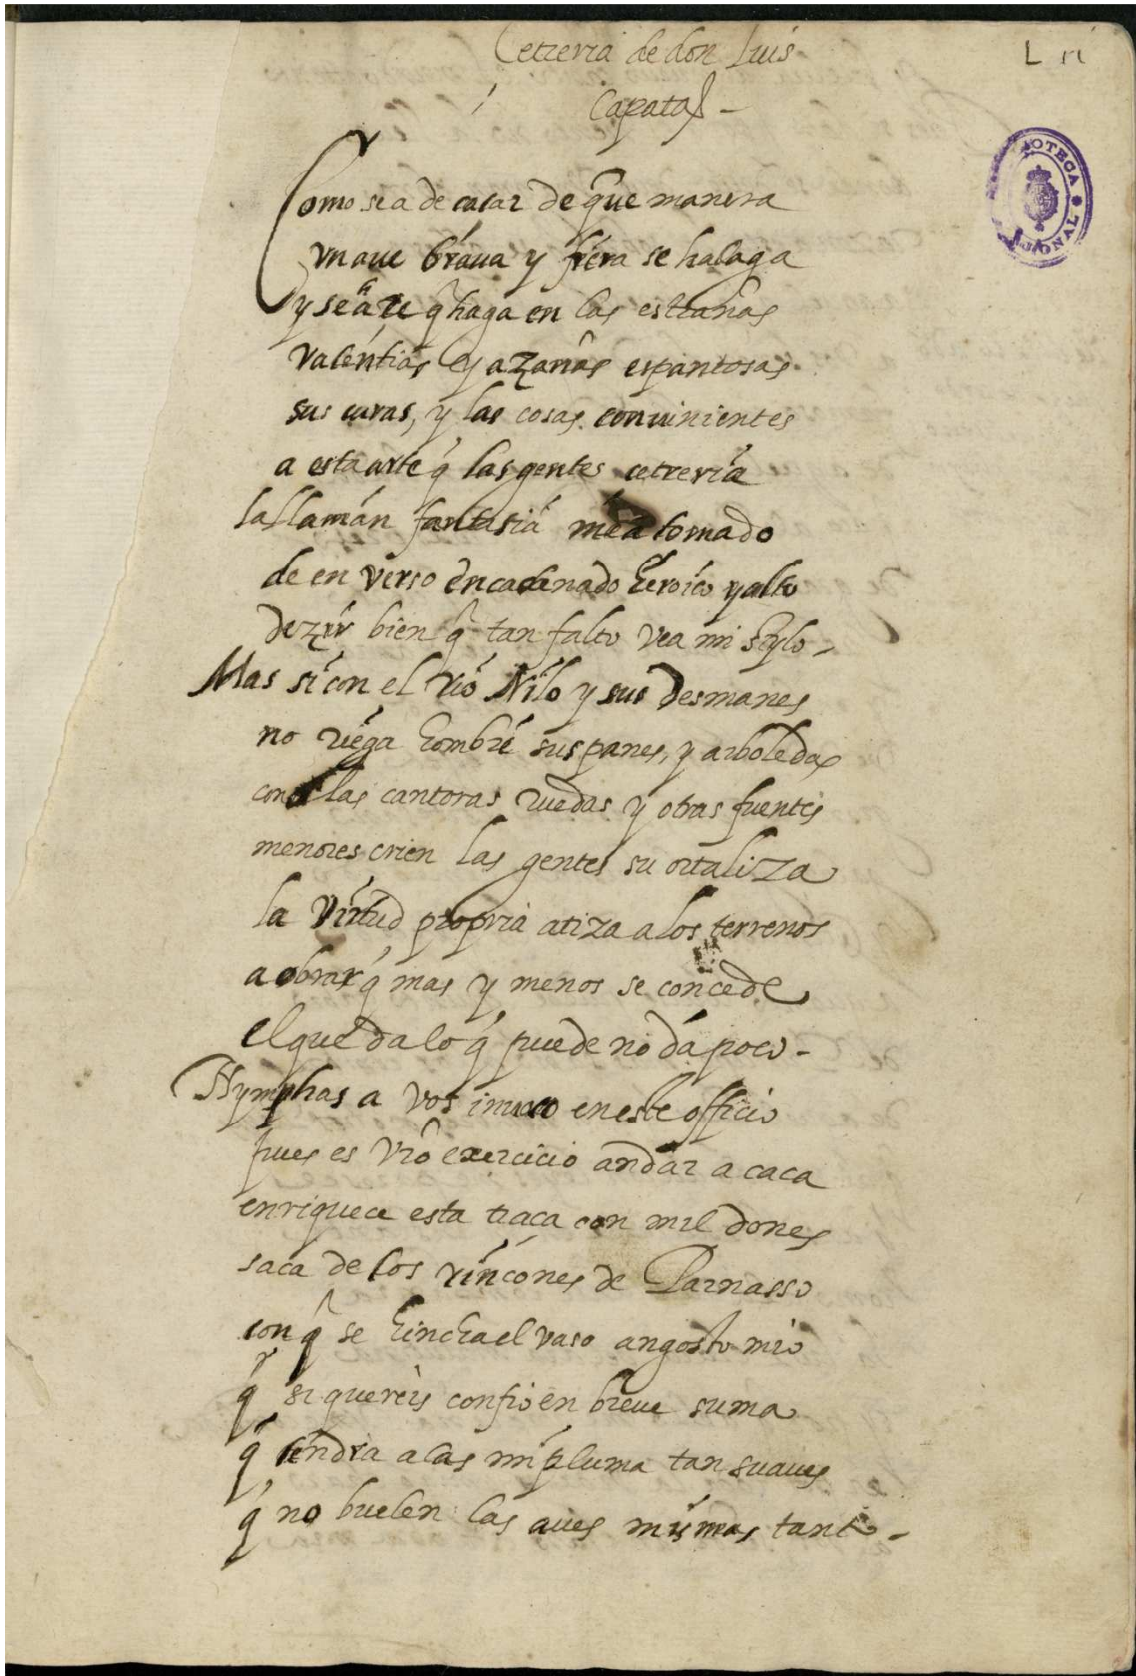 Cetreria de don Luis
Capata
L
BIBLIOTECA NACIONAL
Como se a de cacar de que manera
vn aue braua y fiera se halaga
y se aze q̃ haga en las estrañas
valentias y azañas espantosas
sus curas, y las cosas conuinientes
a esta arte q̃ las gentes cetreria
la llaman fantasia me a tomado
de en verso encadenado heroico y alto
dezir bien q̃ tan falto vea mi stylo
Mas si con el rio Nilo y sus desmanes
no riega hombre sus panes, y arboledas
con las cantoras ruedas y otras fuentes
menores crien las gentes su ortaliza
la virtud propria atiza a los terrenos
a obrar q̃ mas y menos se concede
el que da lo q̃ puede no da poco -
Nymphas a vos inuoco en este officio
pues es vrõ exercicio andar a caca
enriquece esta traca con mil dones
saca de los rincones de Parnasso
con q̃ se hincha el vaso angosto mio
q̃ si quereis confio en breue suma
q̃ tendra alas mi pluma tan suaues
q̃ no buelen las aues mismas tanto -